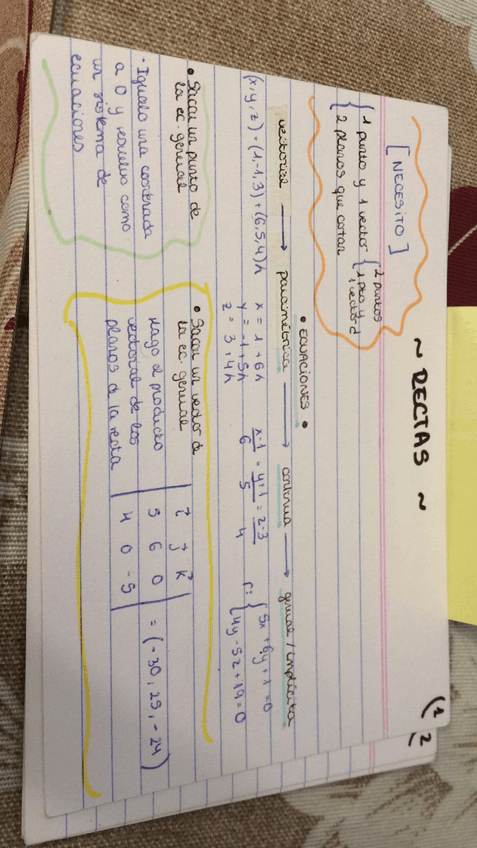 ~ RECTAS ~
(1
(2
[NECESITO]
{ 1 punto y 1 vector { 2 puntos
1 pto y 1 vector d
2 planos que cortan
• ECUACIONES •
vectorial → paramétrica → continua → general / implícita
(x,y,z) = (1,-1,3) + (6,5,4)λ
x = 1 + 6λ
y = -1 + 5λ
z = 3 + 4λ
x-1/6 = y+1/5 = z-3/4
r: { 5x + 6y + 1 = 0
4y - 5z + 19 = 0
• Sacar un punto de
la ec. general
· Igualo una coordenada
a 0 y resuelvo como
un sistema de
ecuaciones
• Sacar un vector de
la ec. general
Hago el producto
vectorial de los
planos de la recta
| i j k |
| 5 6 0 | = (-30, 25, -24)
| 4 0 -5 |